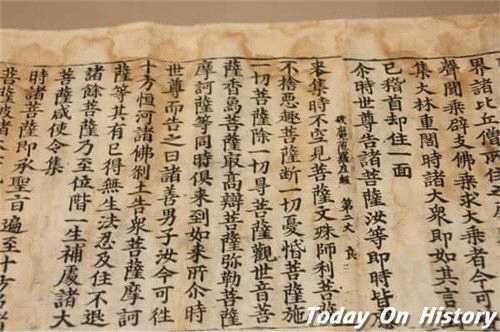 界諸比丘僧
聲聞乘辟支佛乘求大乘者今可
集大林重閣時諸大衆即如其言
已稽首却住一面
尒時世尊告諸菩薩汝等即時皆
第二大 良
來集時不空見菩薩文殊師利菩
不捨惡趣菩薩斷一切憂惱菩薩施
一切菩薩除一切菩薩觀世音菩
薩香菩薩寂高辯菩薩弥勒菩薩
摩訶薩等同時俱來到如來所尒時
世尊而告之曰諸善男子汝今可往
十方恒河諸佛刹土告衆菩薩摩訶
薩等其有已得無生法忍及住不退
諸餘菩薩乃至位階一生補處諸大
菩薩咸使令集
時諸菩薩即承聖旨遍至十方
菩薩
Today On History